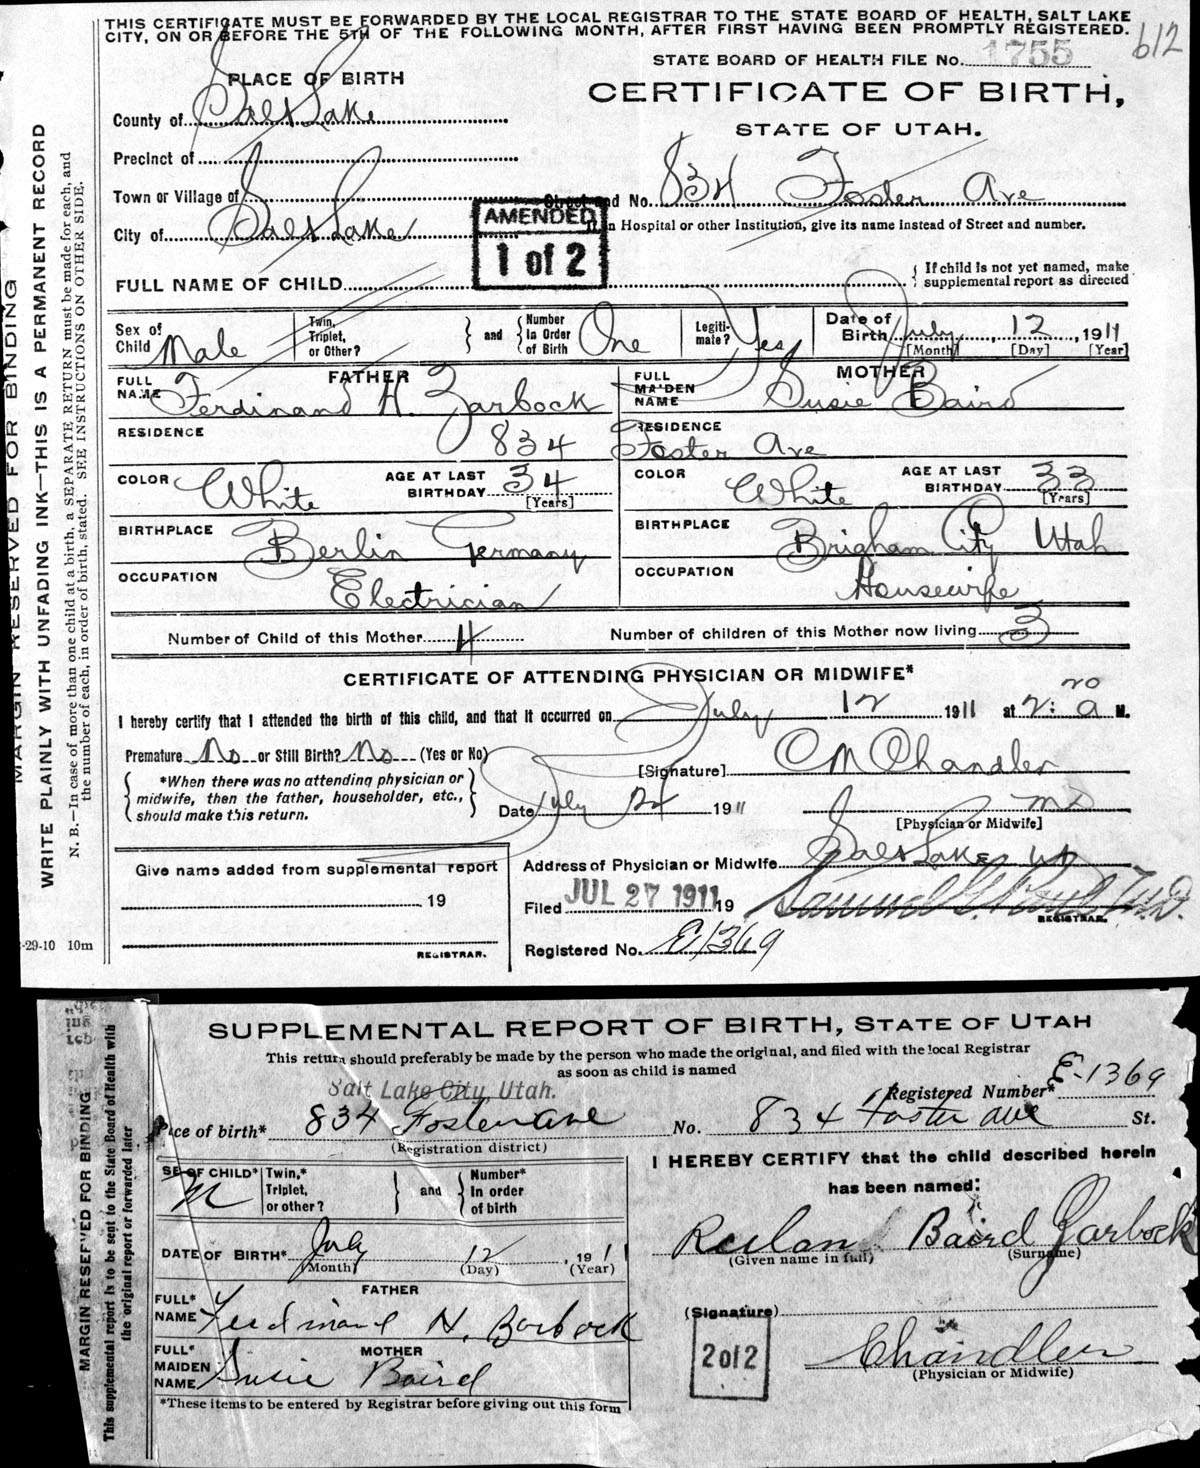 THIS CERTIFICATE MUST BE FORWARDED BY THE LOCAL REGISTRAR TO THE STATE BOARD OF HEALTH, SALT LAKE
CITY, ON OR BEFORE THE 5TH OF THE FOLLOWING MONTH, AFTER FIRST HAVING BEEN PROMPTLY REGISTERED.
612
STATE BOARD OF HEALTH FILE No. 1755
PLACE OF BIRTH
CERTIFICATE OF BIRTH,
STATE OF UTAH.
County of Salt Lake
Precinct of
Town or Village of
Street and No. 834 Foster Ave
City of Salt Lake
If in Hospital or other Institution, give its name instead of Street and number.
AMENDED
1 of 2
FULL NAME OF CHILD
If child is not yet named, make
supplemental report as directed
Sex of Child Male
Twin, Triplet, or Other?
and
Number In Order of Birth One
Legiti-mate? Yes
Date of Birth July 12, 1911
[Month] [Day] [Year]
FATHER
FULL NAME Ferdinand H. Zarbock
MOTHER
FULL MAIDEN NAME Susie Baird
RESIDENCE 834 Foster Ave
RESIDENCE
COLOR White
AGE AT LAST BIRTHDAY 34 [Years]
COLOR White
AGE AT LAST BIRTHDAY 33 [Years]
BIRTHPLACE Berlin Germany
BIRTHPLACE Brigham City Utah
OCCUPATION Electrician
OCCUPATION Housewife
Number of Child of this Mother 4
Number of children of this Mother now living 3
CERTIFICATE OF ATTENDING PHYSICIAN OR MIDWIFE*
I hereby certify that I attended the birth of this child, and that it occurred on July 12 1911 at 2:20 a M.
Premature No or Still Birth? No (Yes or No)
*When there was no attending physician or
midwife, then the father, householder, etc.,
should make this return.
[Signature] C M Chandler
Date July 24 1911
MD
[Physician or Midwife]
Give name added from supplemental report
19
REGISTRAR.
Address of Physician or Midwife Salt Lake Ut
Filed JUL 27 1911 19
Samuel G. Paul M.D.
REGISTRAR.
Registered No. E1369
-29-10 10m
MARGIN RESERVED FOR BINDING
WRITE PLAINLY WITH UNFADING INK—THIS IS A PERMANENT RECORD
N. B.—In case of more than one child at a birth, a SEPARATE RETURN must be made for each, and
the number of each, in order of birth, stated. SEE INSTRUCTIONS ON OTHER SIDE.
SUPPLEMENTAL REPORT OF BIRTH, STATE OF UTAH
This return should preferably be made by the person who made the original, and filed with the local Registrar
as soon as child is named
Salt Lake City, Utah.
Registered Number* E-1369
Place of birth* 834 Foster ave No. 834 Foster ave St.
(Registration district)
SEX OF CHILD* M
Twin,* Triplet, or other?
and
Number* In order of birth
I HEREBY CERTIFY that the child described herein
has been named:
DATE OF BIRTH* July 12, 1911
(Month) (Day) (Year)
Rulan Baird Zarbock
(Given name in full) (Surname)
FATHER
FULL* NAME Ferdinand H. Zarbock
(Signature)
MOTHER
FULL* MAIDEN NAME Susie Baird
2 of 2
Chandler
(Physician or Midwife)
*These items to be entered by Registrar before giving out this form
MARGIN RESERVED FOR BINDING
This supplemental report is to be sent to the State Board of Health with
the original report or forwarded later